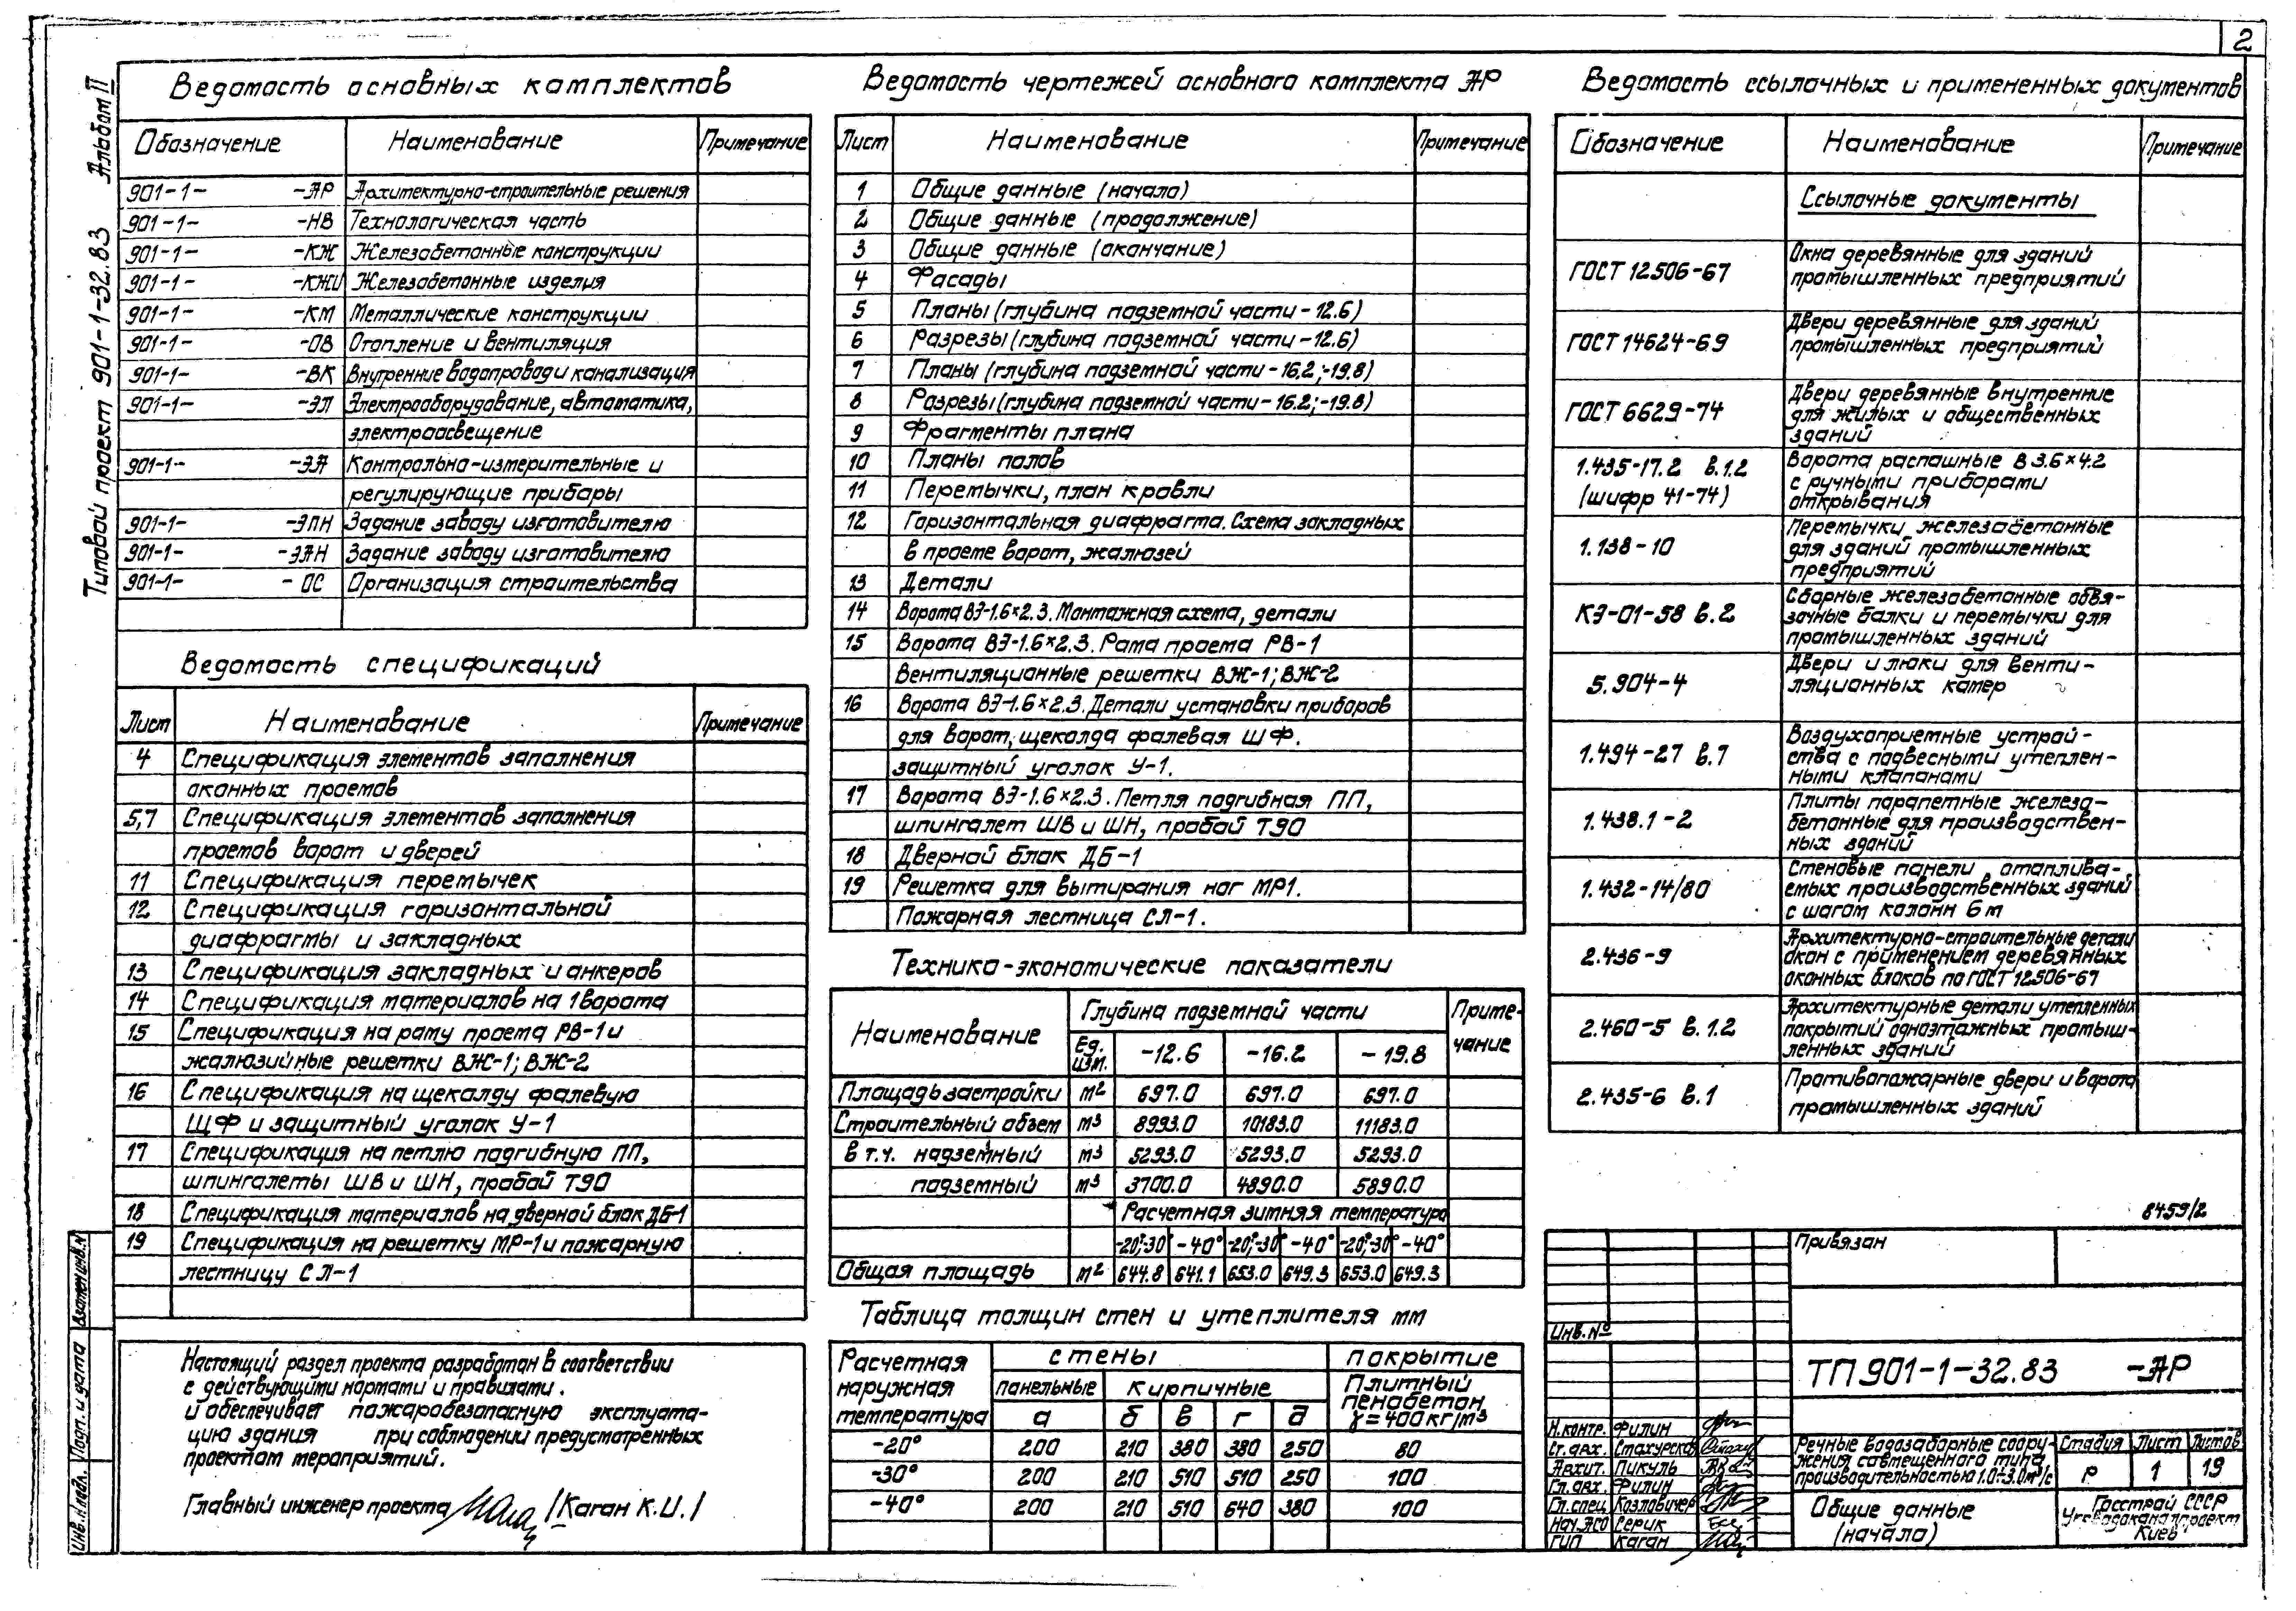 2
Альбом II
Типовой проект 901-1-32.83
Ведомость основных комплектов
Обозначение Наименование Примечание
901-1- -АР Архитектурно-строительные решения
901-1- -НВ Технологическая часть
901-1- -КЖ Железобетонные конструкции
901-1- -КЖИ Железобетонные изделия
901-1- -КМ Металлические конструкции
901-1- -ОВ Отопление и вентиляция
901-1- -ВК Внутренние водопровод и канализация
901-1- -ЭЛ Электрооборудование, автоматика,
электроосвещение
901-1- -ЭА Контрольно-измерительные и
регулирующие приборы
901-1- -ЭЛН Задание заводу изготовителю
901-1- -ЭАН Задание заводу изготовителю
901-1- -ОС Организация строительства
Ведомость спецификаций
Лист Наименование Примечание
4 Спецификация элементов заполнения
оконных проемов
5,7 Спецификация элементов заполнения
проемов ворот и дверей
11 Спецификация перемычек
12 Спецификация горизонтальной
диафрагмы и закладных
13 Спецификация закладных и анкеров
14 Спецификация материалов на 1 ворота
15 Спецификация на раму проема РВ-1 и
жалюзийные решетки ВЖ-1; ВЖ-2
16 Спецификация на щеколду фалевую
ЩФ и защитный уголок У-1
17 Спецификация на петлю подгибную ПП,
шпингалеты ШВ и ШН, пробой Т90
18 Спецификация материалов на дверной блок ДБ-1
19 Спецификация на решетку МР-1 и пожарную
лестницу СЛ-1
Настоящий раздел проекта разработан в соответствии
с действующими нормами и правилами.
и обеспечивает пожаробезопасную эксплуата-
цию здания при соблюдении предусмотренных
проектом мероприятий.
Главный инженер проекта /Каган К.И./
Взамен инв.N
Подп. и дата
Инв.N подл.
Ведомость чертежей основного комплекта АР
Лист Наименование Примечание
1 Общие данные (начало)
2 Общие данные (продолжение)
3 Общие данные (окончание)
4 Фасады
5 Планы (глубина подземной части -12.6)
6 Разрезы (глубина подземной части -12.6)
7 Планы (глубина подземной части -16.2;-19.8)
8 Разрезы (глубина подземной части -16.2;-19.8)
9 Фрагменты плана
10 Планы полов
11 Перемычки, план кровли
12 Горизонтальная диафрагма. Схема закладных
в проеме ворот, жалюзей
13 Детали
14 Ворота ВЭ-1.6×2.3. Монтажная схема, детали
15 Ворота ВЭ-1.6×2.3. Рама проема РВ-1
Вентиляционные решетки ВЖ-1; ВЖ-2
16 Ворота ВЭ-1.6×2.3. Детали установки приборов
для ворот, щеколда фалевая ШФ.
защитный уголок У-1.
17 Ворота ВЭ-1.6×2.3. Петля подгибная ПП,
шпингалет ШВ и ШН, пробой Т90
18 Дверной блок ДБ-1
19 Решетка для вытирания ног МР1.
Пожарная лестница СЛ-1.
Технико-экономические показатели
Наименование Глубина подземной части Приме-
чание
Ед. изм. -12.6 -16.2 -19.8
Площадь застройки м2 697.0 697.0 697.0
Строительный объем м3 8993.0 10183.0 11183.0
в т.ч. надземный м3 5293.0 5293.0 5293.0
подземный м3 3700.0 4890.0 5890.0
Расчетная зимняя температура
-20°;-30° -40° -20°;-30° -40° -20°;-30° -40°
Общая площадь м2 644.8 641.1 653.0 649.3 653.0 649.3
Таблица толщин стен и утеплителя мм
Расчетная наружная температура стены покрытие
панельные кирпичные Плитный пенобетон
а б в г д γ=400кг/м3
-20° 200 210 380 380 250 80
-30° 200 210 510 510 250 100
-40° 200 210 510 640 380 100
Ведомость ссылочных и примененных документов
Обозначение Наименование Примечание
Ссылочные документы
ГОСТ 12506-67 Окна деревянные для зданий
промышленных предприятий
ГОСТ 14624-69 Двери деревянные для зданий
промышленных предприятий
ГОСТ 6629-74 Двери деревянные внутренние
для жилых и общественных
зданий
1.435-17.2 в.1.2 Ворота распашные В 3.6×4.2
(шифр 41-74) с ручными приборами
открывания
1.138-10 Перемычки железобетонные
для зданий промышленных
предприятий
КЭ-01-58 в.2 Сборные железобетонные обвя-
зочные балки и перемычки для
промышленных зданий
5.904-4 Двери и люки для венти-
ляционных камер
1.494-27 в.7 Воздухоприемные устрой-
ства с подвесными утеплен-
ными клапанами
1.438.1-2 Плиты парапетные железо-
бетонные для производствен-
ных зданий
1.432-14/80 Стеновые панели отаплива-
емых производственных зданий
с шагом колонн 6м
2.436-9 Архитектурно-строительные детали
окон с применением деревянных
оконных блоков по ГОСТ 12506-67
2.460-5 в.1.2 Архитектурные детали утепленных
покрытий одноэтажных промыш-
ленных зданий
2.435-6 в.1 Противопожарные двери и ворота
промышленных зданий
8459/2
Привязан
Инв.№
ТП 901-1-32.83 -АР
Н.контр. Филин
Ст.арх. Стахурская
Архит. Пикуль
Гл.арх. Филин
Гл.спец Козлавичер
Нач.АСО Серик
ГИП Каган
Речные водозаборные соору-
жения совмещенного типа
производительностью 1.0÷3.0м³/с
Стадия Лист Листов
Р 1 19
Общие данные
(начало)
Госстрой СССР
Укрводоканалпроект
Киев